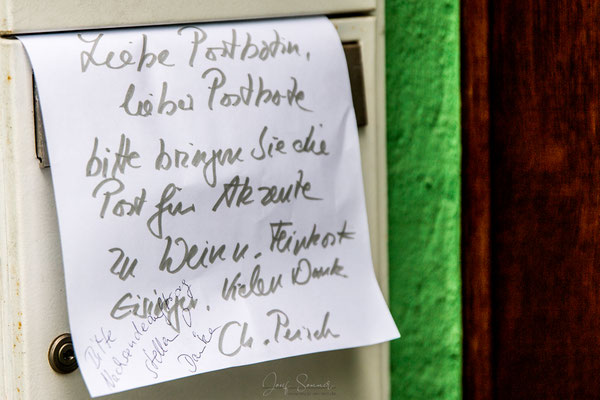 Liebe Postbotin,
lieber Postbote
bitte bringen Sie die
Post für Akzente
zu Wein u. Feinkost
Vielen Dank
Ch.
Bitte
Nachsendeantrag
stellen
Danke
Jens